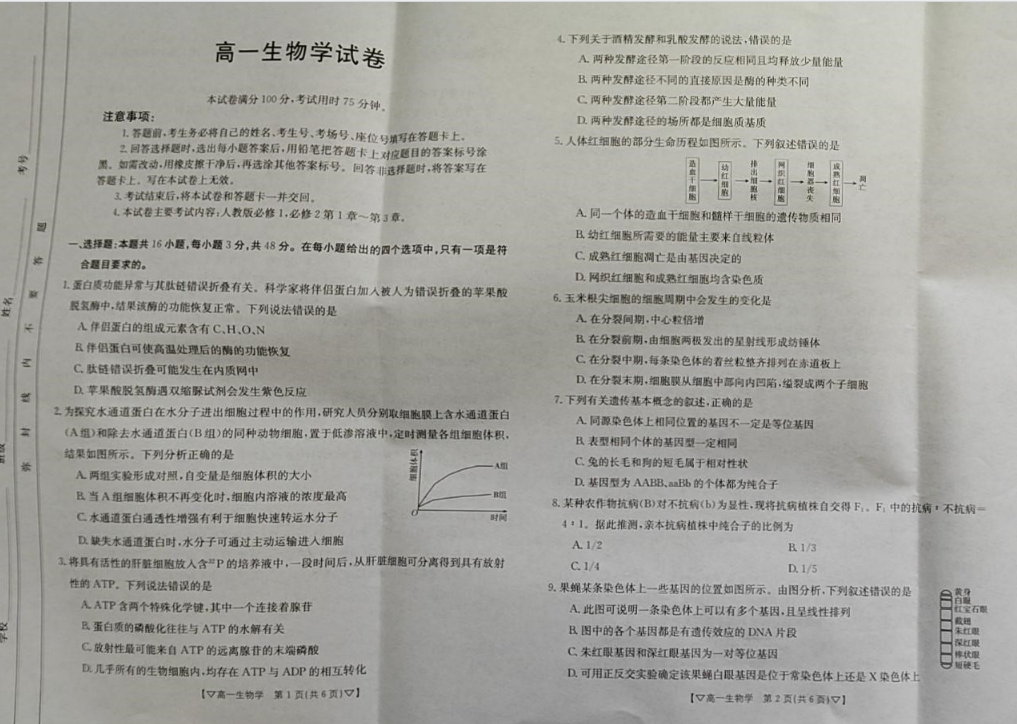 高一生物学试卷
本试卷满分100分,考试用时75分钟。
注意事项:
1.答题前,考生务必将自己的姓名、考生号、考场号、座位号填写在答题卡上。
2.回答选择题时,选出每小题答案后,用铅笔把答题卡上对应题目的答案标号涂
黑。如需改动,用橡皮擦干净后,再选涂其他答案标号。回答非选择题时,将答案写在
答题卡上。写在本试卷上无效。
3.考试结束后,将本试卷和答题卡一并交回。
4.本试卷主要考试内容:人教版必修1,必修2第1章~第3章。
一、选择题:本题共16小题,每小题3分,共48分。在每小题给出的四个选项中,只有一项是符
合题目要求的。
1.蛋白质功能异常与其肽链错误折叠有关。科学家将伴侣蛋白加入被人为错误折叠的苹果酸
脱氢酶中,结果该酶的功能恢复正常。下列说法错误的是
A.伴侣蛋白的组成元素含有C、H、O、N
B.伴侣蛋白可使高温处理后的酶的功能恢复
C.肽链错误折叠可能发生在内质网中
D.苹果酸脱氢酶遇双缩脲试剂会发生紫色反应
2.为探究水通道蛋白在水分子进出细胞过程中的作用,研究人员分别取细胞膜上含水通道蛋白
(A组)和除去水通道蛋白(B组)的同种动物细胞,置于低渗溶液中,定时测量各组细胞体积,
结果如图所示。下列分析正确的是
A.两组实验形成对照,自变量是细胞体积的大小
B.当A组细胞体积不再变化时,细胞内溶液的浓度最高
C.水通道蛋白通透性增强有利于细胞快速转运水分子
D.缺失水通道蛋白时,水分子可通过主动运输进入细胞
细胞体积
A组
B组
O
时间
3.将具有活性的肝脏细胞放入含³²P的培养液中,一段时间后,从肝脏细胞可分离得到具有放射
性的ATP。下列说法错误的是
A.ATP含两个特殊化学键,其中一个连接着腺苷
B.蛋白质的磷酸化往往与ATP的水解有关
C.放射性最可能来自ATP的远离腺苷的末端磷酸
D.几乎所有的生物细胞内,均存在ATP与ADP的相互转化
【▽高一生物学 第1页(共6页)▽】
4.下列关于酒精发酵和乳酸发酵的说法,错误的是
A.两种发酵途径第一阶段的反应相同且均释放少量能量
B.两种发酵途径不同的直接原因是酶的种类不同
C.两种发酵途径第二阶段都产生大量能量
D.两种发酵途径的场所都是细胞质基质
5.人体红细胞的部分生命历程如图所示。下列叙述错误的是
造血干细胞
幼红细胞
排出细胞核
网织红细胞
细胞器丧失
成熟红细胞
凋亡
A.同一个体的造血干细胞和髓样干细胞的遗传物质相同
B.幼红细胞所需要的能量主要来自线粒体
C.成熟红细胞凋亡是由基因决定的
D.网织红细胞和成熟红细胞均含染色质
6.玉米根尖细胞的细胞周期中会发生的变化是
A.在分裂间期,中心粒倍增
B.在分裂前期,由细胞两极发出的星射线形成纺锤体
C.在分裂中期,每条染色体的着丝粒整齐排列在赤道板上
D.在分裂末期,细胞膜从细胞中部向内凹陷,缢裂成两个子细胞
7.下列有关遗传基本概念的叙述,正确的是
A.同源染色体上相同位置的基因不一定是等位基因
B.表型相同个体的基因型一定相同
C.兔的长毛和狗的短毛属于相对性状
D.基因型为AABB、aaBb的个体都为纯合子
8.某种农作物抗病(B)对不抗病(b)为显性,现将抗病植株自交得F₁。F₁中的抗病:不抗病=
4:1。据此推测,亲本抗病植株中纯合子的比例为
A.1/2
B.1/3
C.1/4
D.1/5
9.果蝇某条染色体上一些基因的位置如图所示。由图分析,下列叙述错误的是
A.此图可说明一条染色体上可以有多个基因,且呈线性排列
B.图中的各个基因都是有遗传效应的DNA片段
C.朱红眼基因和深红眼基因为一对等位基因
D.可用正反交实验确定该果蝇白眼基因是位于常染色体上还是X染色体上
黄身
白眼
红宝石眼
截翅
朱红眼
深红眼
棒状眼
短硬毛
【▽高一生物学 第2页(共6页)▽】
考号
姓名
班级
学校
密封线内不要答题